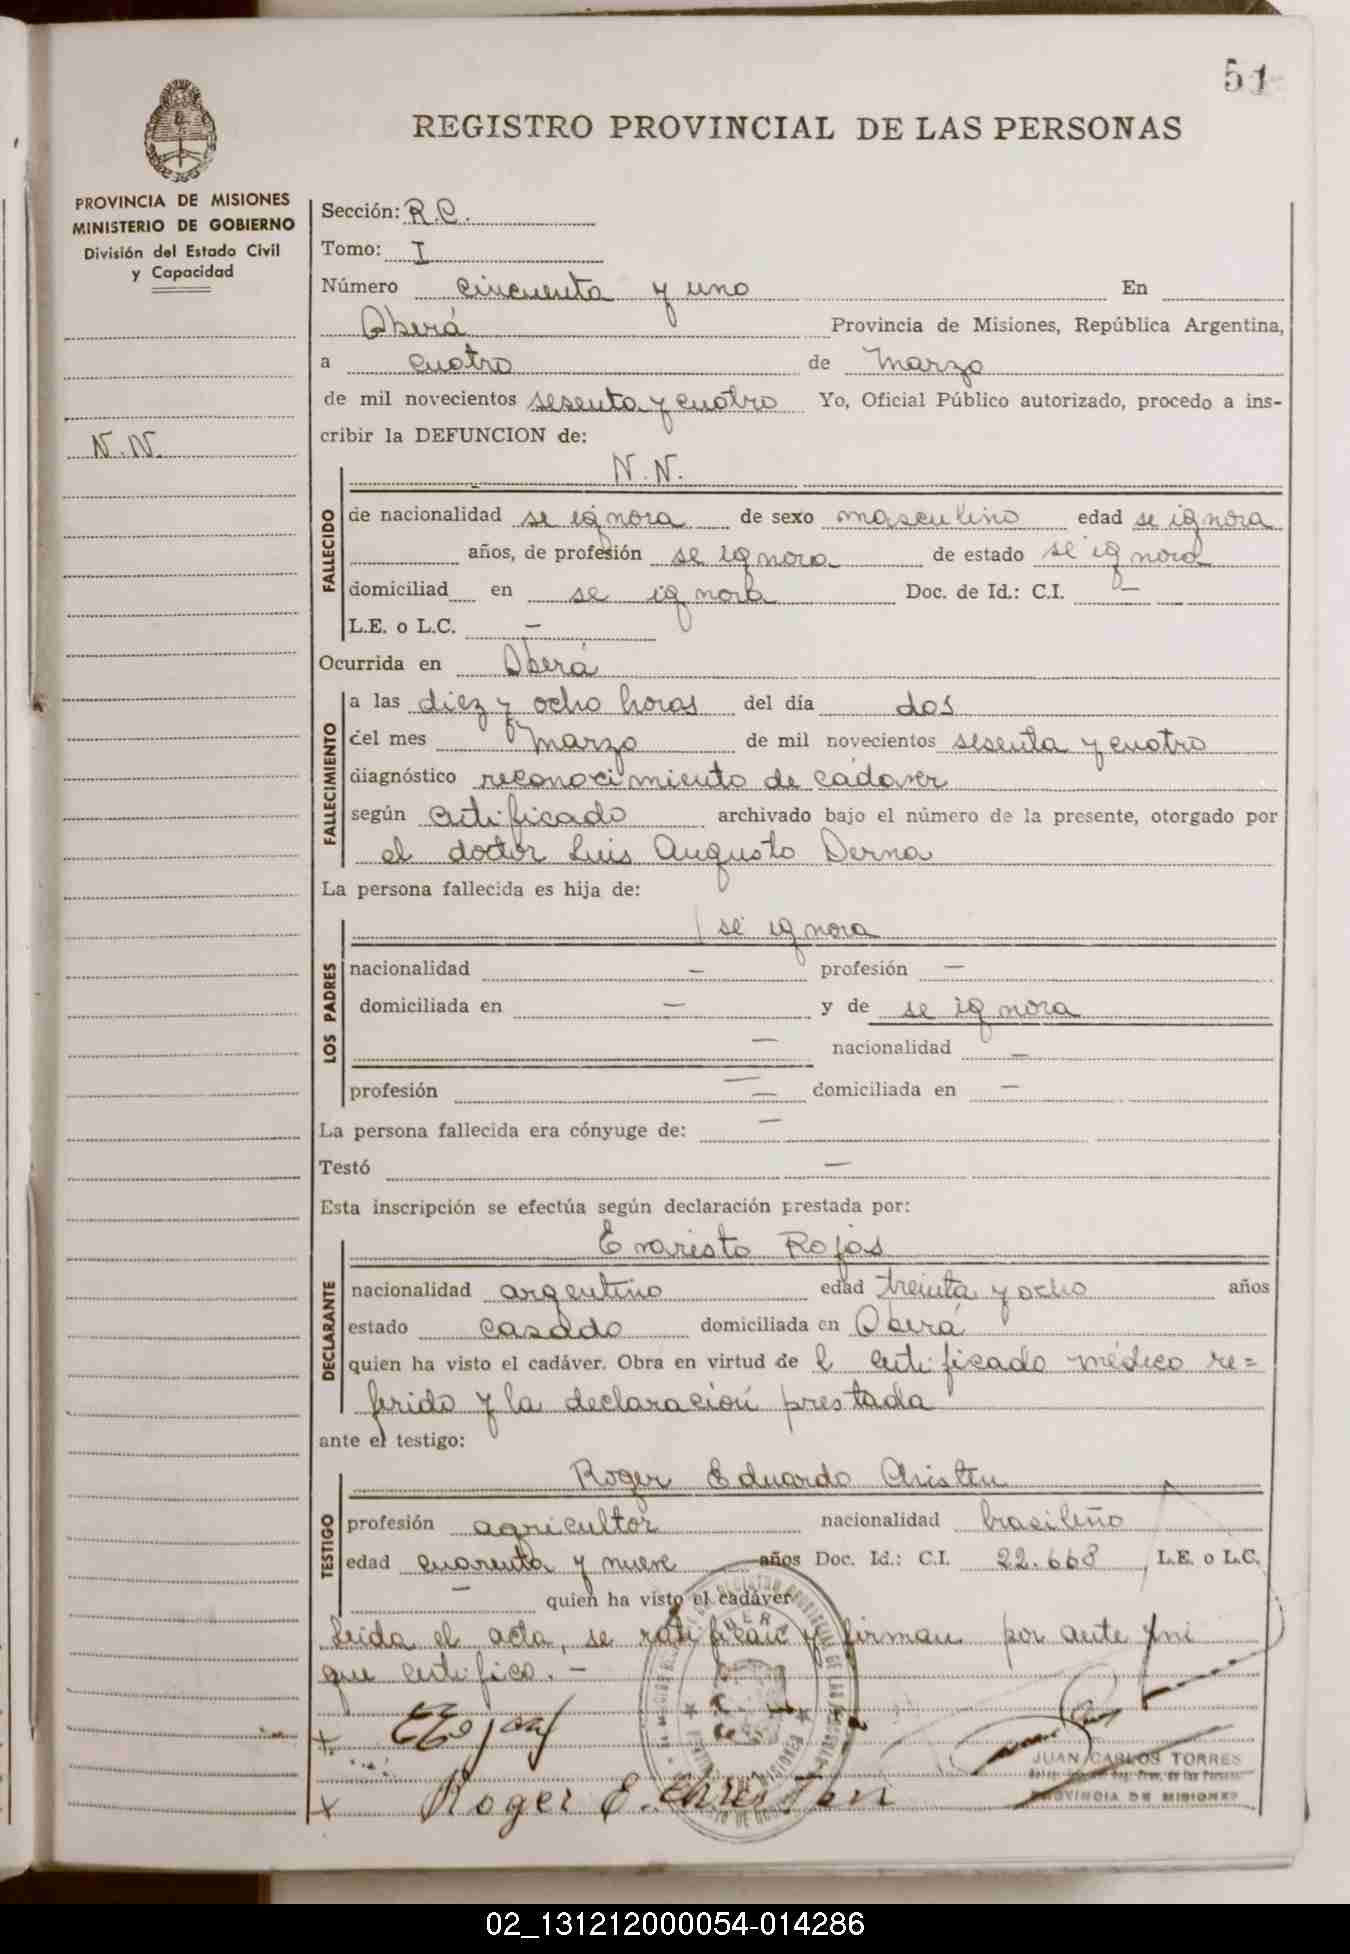 51
REGISTRO PROVINCIAL DE LAS PERSONAS
PROVINCIA DE MISIONES
MINISTERIO DE GOBIERNO
División del Estado Civil
y Capacidad
N.N.
Sección: R.C.
Tomo: I
Número cincuenta y uno En
Oberá Provincia de Misiones, República Argentina,
a cuatro de Marzo
de mil novecientos sesenta y cuatro Yo, Oficial Público autorizado, procedo a ins-
cribir la DEFUNCION de:
N.N.
FALLECIDO
de nacionalidad se ignora de sexo masculino edad se ignora
años, de profesión se ignora de estado se ignora
domiciliad en se ignora Doc. de Id.: C.I. —
L.E. o L.C. —
Ocurrida en Oberá
FALLECIMIENTO
a las diez y ocho horas del día dos
del mes Marzo de mil novecientos sesenta y cuatro
diagnóstico reconocimiento de cádaver
según certificado archivado bajo el número de la presente, otorgado por
el doctor Luis Augusto Derna
La persona fallecida es hija de:
LOS PADRES
se ignora
nacionalidad — profesión —
domiciliada en — y de se ignora
— nacionalidad —
profesión — domiciliada en —
La persona fallecida era cónyuge de: —
Testó —
Esta inscripción se efectúa según declaración prestada por:
Evaristo Rojas
DECLARANTE
nacionalidad argentino edad treinta y ocho años
estado casado domiciliada en Oberá
quien ha visto el cadáver. Obra en virtud de l certificado médico re=
ferido y la declaración prestada
ante el testigo:
Roger Eduardo Christen
TESTIGO
profesión agricultor nacionalidad brasileño
edad cuarenta y nueve años Doc. Id.: C.I. 22.668 L.E. o L.C.
— quien ha visto el cadáver
leida el acta, se ratifican y firman por ante mi
que certifico. —
x
x Roger E. Christen
JUAN CARLOS TORRES
PROVINCIA DE MISIONES
02_131212000054-014286